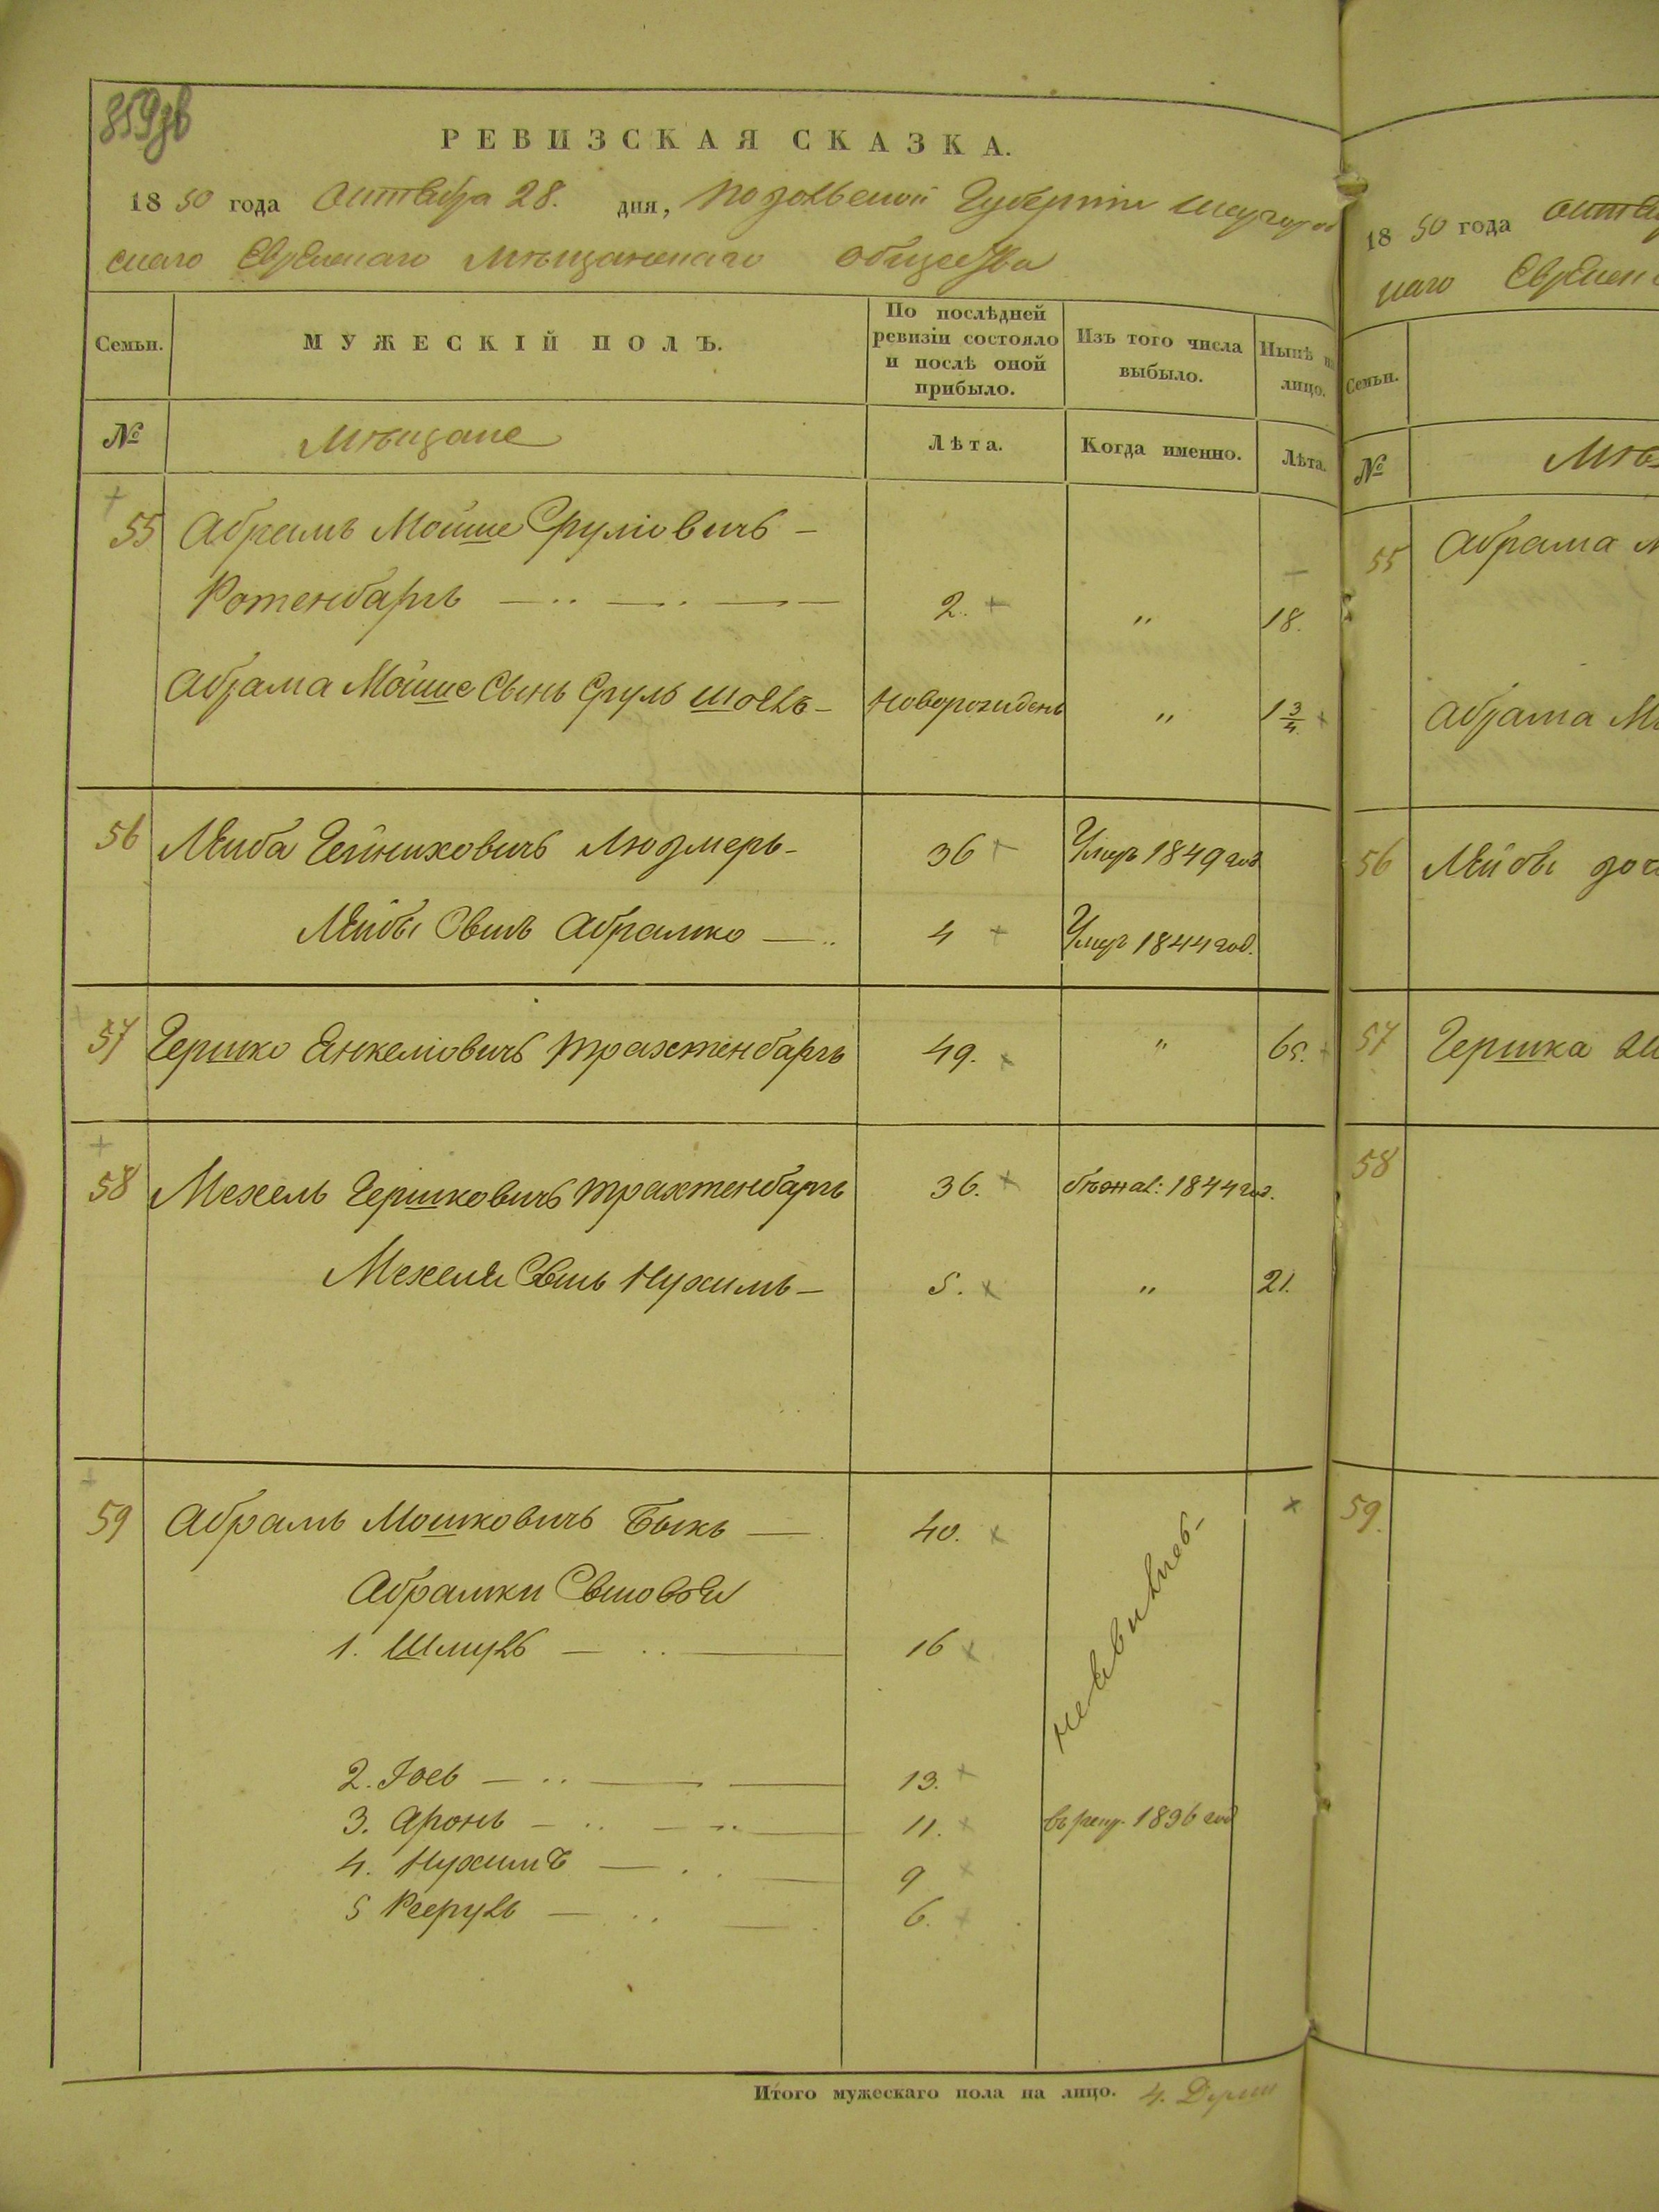 859об
РЕВИЗСКАЯ СКАЗКА.
1850 года Октября 28. дня, Подольской Губернiи Шаргород
скаго Еврейскаго Мѣщанскаго общества
Семьи.
МУЖЕСКІЙ ПОЛЪ.
По послѣдней ревизіи состояло и послѣ оной прибыло.
Изъ того числа выбыло.
Нынѣ на лицо.
№
Мѣщане
Лѣта.
Когда именно.
Лѣта.
55 Абрамъ Мойше Сруліовичъ —
Ротенбаргъ 2. " 18.
Абрама Мойше Сынъ Сруль Шоелъ — Новорожденъ " 1 3/4
56 Лейба Гейниховичъ Людмеръ — 36 Умеръ 1849 год
Лейбы Сынъ Абрамко — 4 Умеръ 1844 год.
57 Гершко Янкеліовичъ Трахтенбаргъ 49. " 65.
58 Мехель Гершковичъ Трахтенбаргъ 36. бѣжал: 1844 год.
Мехеля Сынъ Нухимъ — 5. " 21.
59 Абрамъ Мошковичъ Быкъ — 40.
Абрамки Сыновья
1. Шмуль — 16
2. Іосъ — 13.
3. Аронъ — 11. въ рекр. 1836 год
4. Нухимъ — 9
5 — 6.
Итого мужескаго пола на лицо. 4. Души
1850 года
наго
Семьи.
№
55 Абрама М
Абрама М
56 Лейбы доч
57 Гершка
58
59.